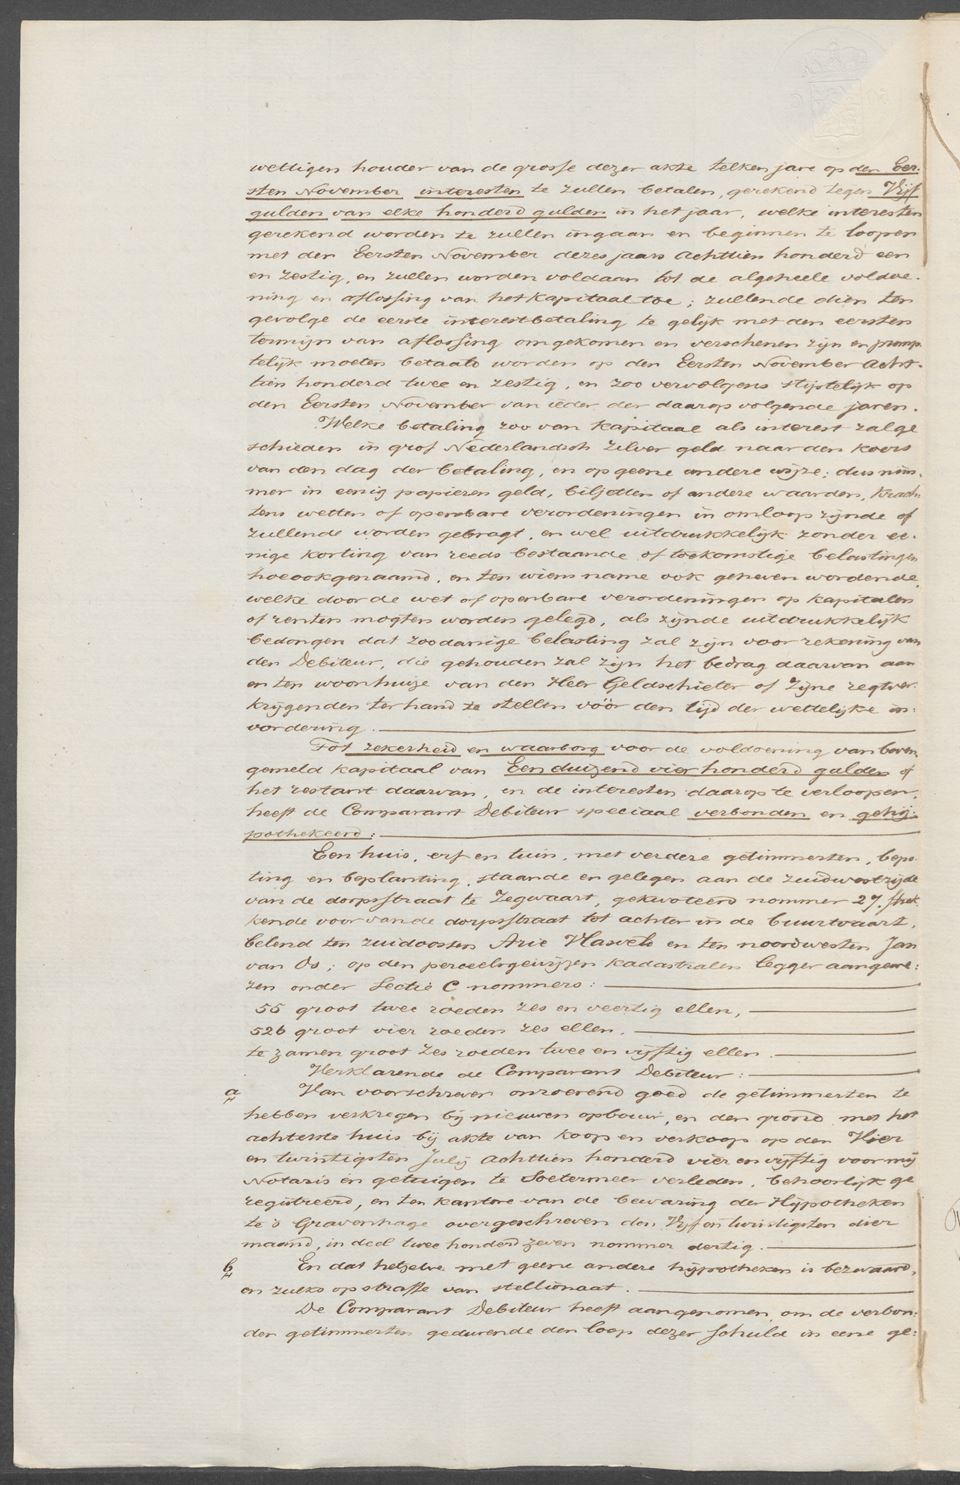 wettigen houder van de grosse dezer akte telken jare op den Eer-
sten November interesten te zullen betalen, gerekend tegen Vijf
gulden van elke honderd gulden in het jaar, welke interesten
gerekend worden te zullen ingaan en beginnen te loopen
met den Eersten November dezes jaars Achttien honderd een
en zestig, en zullen worden voldaan tot de algeheele voldoe-
ning en aflossing van het kapitaal toe; zullende dien ten
gevolge de eerste interestbetaling te gelijk met den eersten
termijn van aflossing omgekomen en verschenen zijn en promp
telijk moeten betaald worden op den Eersten November Acht-
tien honderd twee en zestig, en zoo vervolgens stiptelijk op
den Eersten November van ieder der daarop volgende jaren.
Welke betaling zoo van kapitaal als interest zal ge
schieden in grof Nederlandsch zilver geld naar den koers
van den dag der betaling, en op geene andere wijze; dus nim-
mer in eenig papieren geld, biljetten of andere waarden, krach
tens wetten of openbare verordeningen in omloop zijnde of
zullende worden gebragt, en wel uitdrukkelijk zonder ee-
nige korting van reeds bestaande of toekomstige belastingen
hoe ook genaamd, en ten wiens name ook geheven wordende,
welke door de wet of openbare verordeningen op kapitalen
of renten mogten worden gelegd, als zijnde uitdrukkelijk
bedongen dat zoodanige belasting zal zijn voor rekening van
den Debiteur, die gehouden zal zijn het bedrag daarvan aan
en ten woonhuize van den Heer Geldschieter of Zijne regtver-
krijgenden ter hand te stellen vóór den tijd der wettelijke in-
vordering.
Tot zekerheid en waarborg voor de voldoening van boven
gemeld kapitaal van Een duizend vier honderd gulden of
het restant daarvan, en de interesten daarop te verloopen,
heeft de Comparant Debiteur speciaal verbonden en gehij-
pothekeerd:
Een huis, erf en tuin, met verdere getimmerten, bepo-
ting en beplanting, staande en gelegen aan de zuidwestzijde
van de dorpsstraat te Zegwaart, gekwoteerd nommer 27, strek
kende voor van de dorpsstraat tot achter in de buurtvaart,
belend ten zuidoosten Arie Hasvelt en ten noordwesten Jan
van Os; op den perceelsgewijzen kadastralen legger aangewe-
zen onder Sectie C nommers:
55 groot twee roeden zes en veertig ellen,
526 groot vier roeden zes ellen.
te zamen groot zes roeden twee en vijftig ellen.
Verklarende de Comparant Debiteur:
a Van voorschreven onroerend goed de getimmerten te
hebben verkregen bij nieuwen opbouw, en den grond met het
achterste huis bij akte van koop en verkoop op den Vier
en twintigsten Julij Achttien honderd vier en vijftig voor mij
Notaris en getuigen te Soetermeer verleden, behoorlijk ge
registreerd, en ten kantore van de bewaring der Hijpotheken
te 's Gravenhage overgeschreven den Vijf en twintigsten dier
maand, in deel twee honderd zeven nommer dertig.
b En dat hetzelve met geene andere hijpotheken is bezwaard,
en zulks op straffe van stellionaat.
De Comparant Debiteur heeft aangenomen, om de verbon-
den getimmerten gedurende den loop dezer schuld in eene ge-